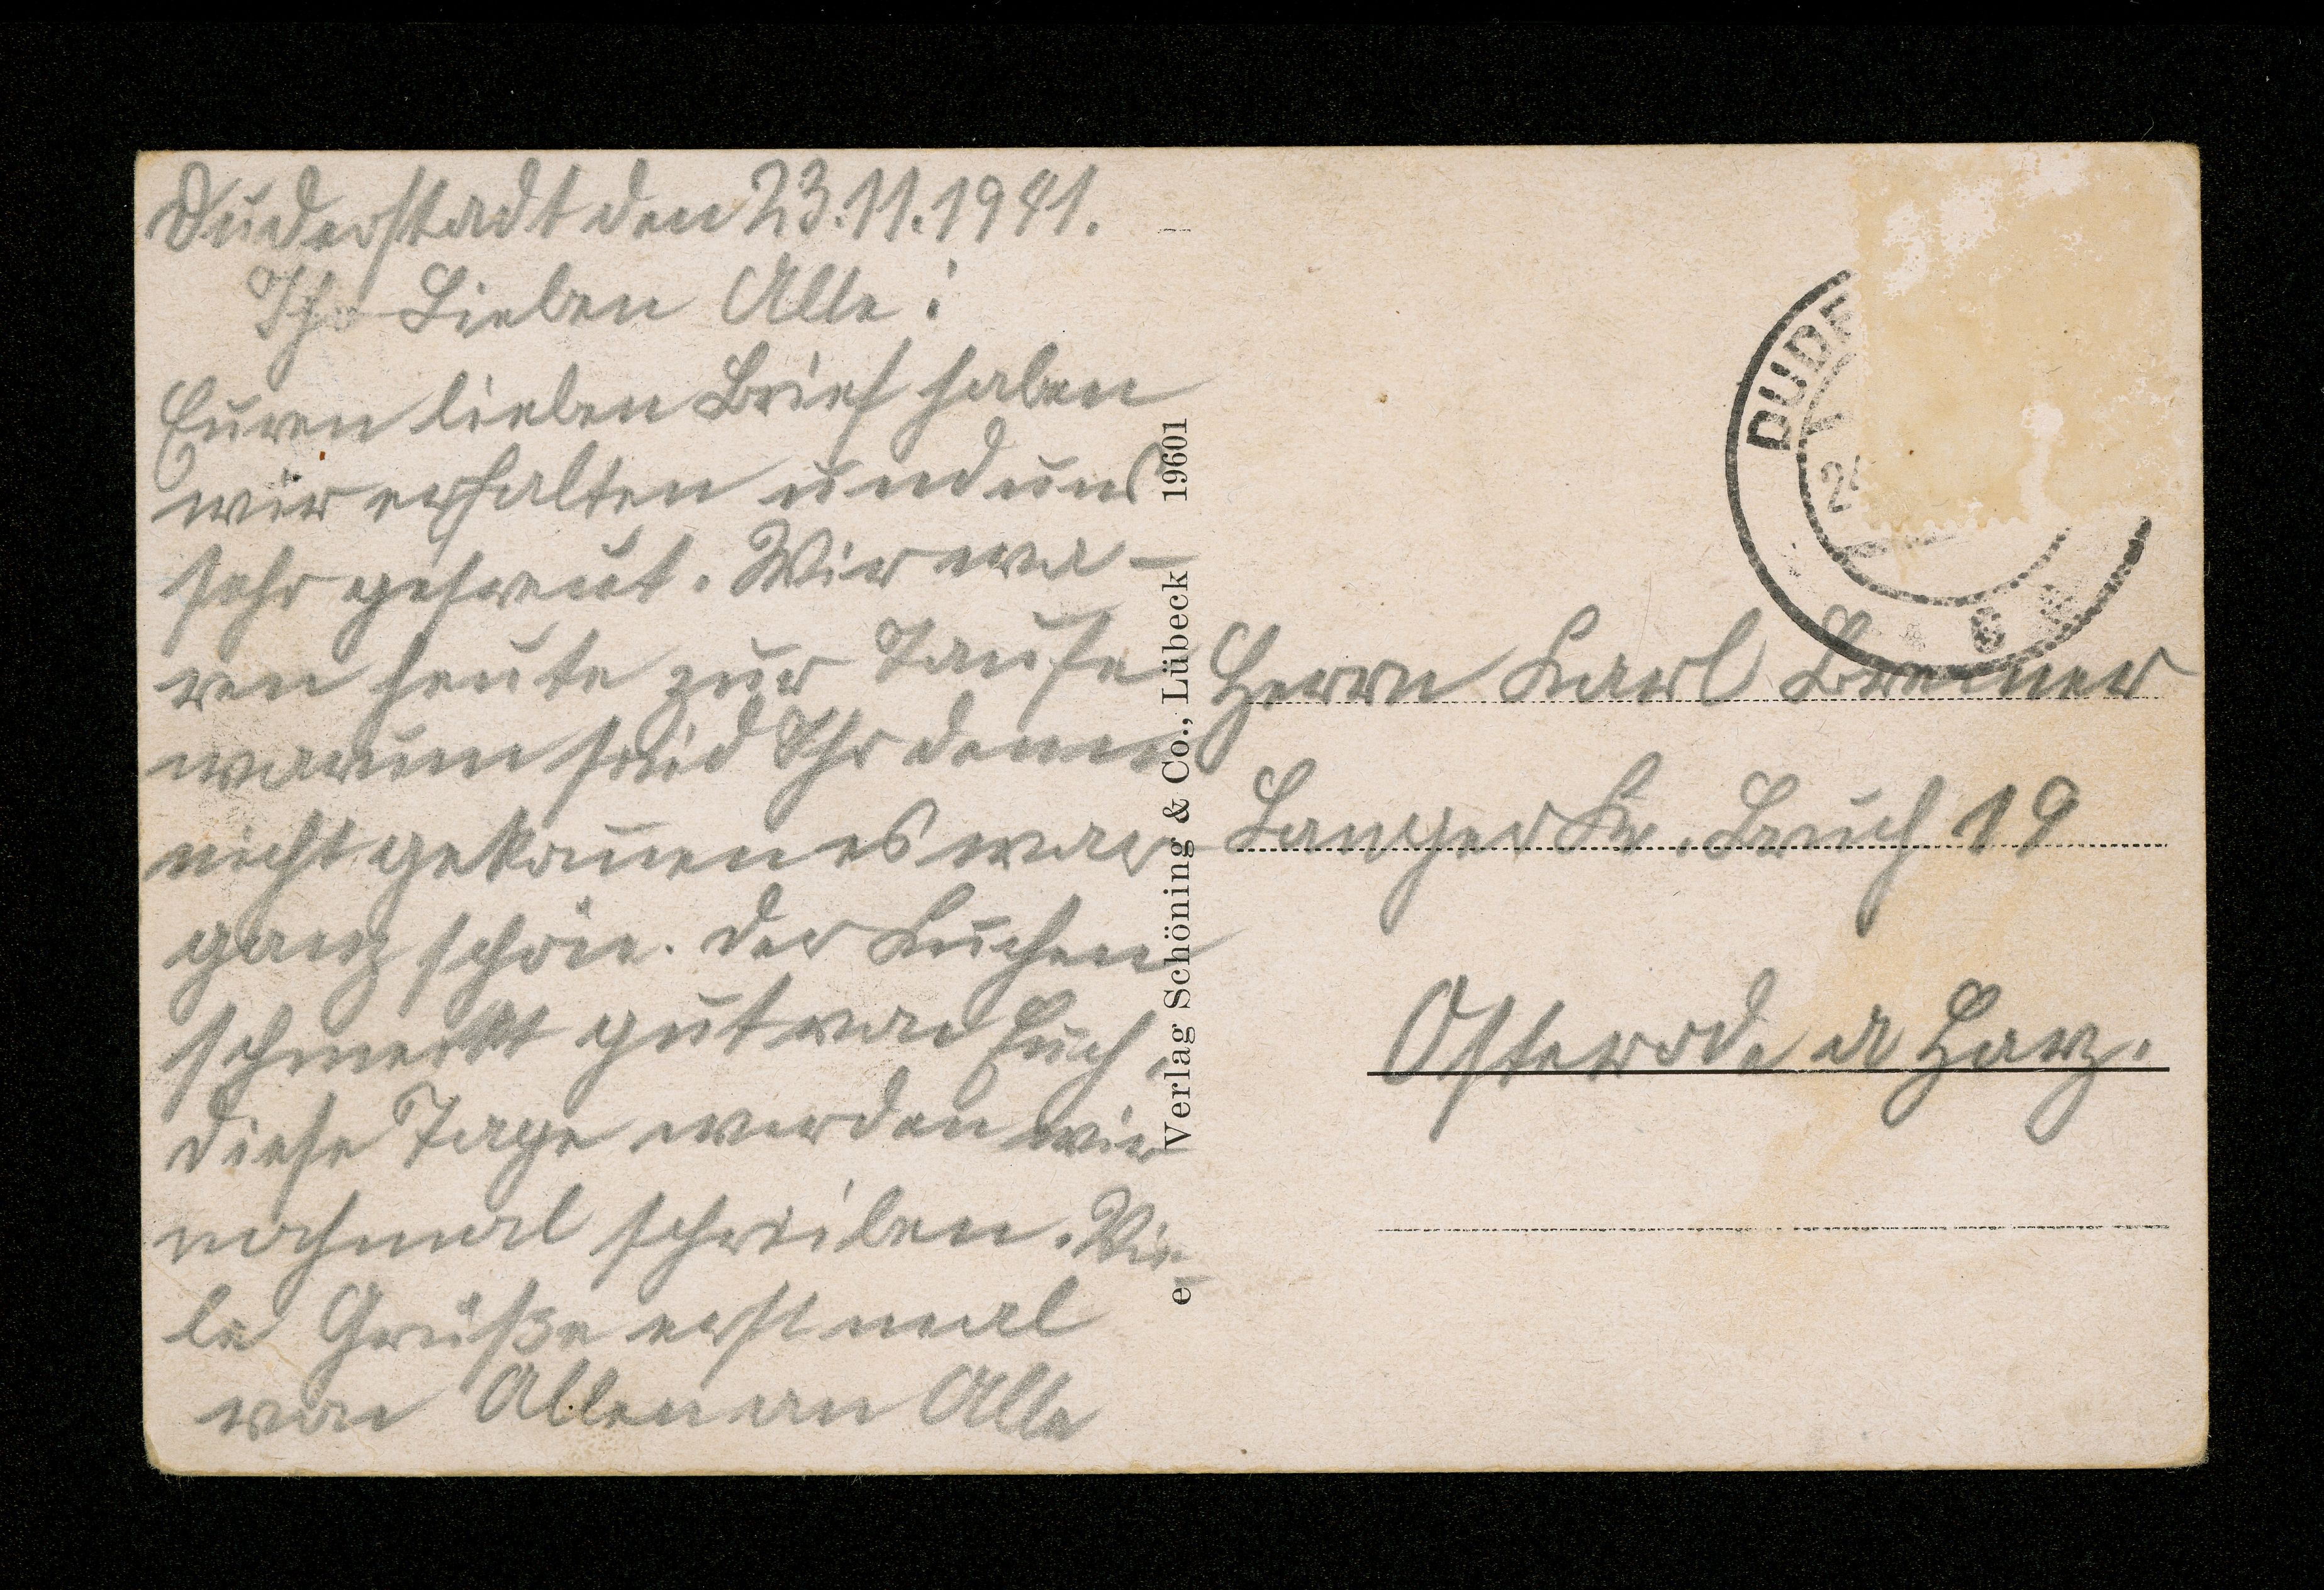 Duderstadt den 23.11.1941.
Ihr Lieben Alle!
Euren lieben Brief haben
wir erhalten und uns
sehr gefreut. Wir wa-
ren heute zur Taufe
warum seid Ihr denn
nicht gekom̅en es war
ganz schön. Der Kuchen
schmeckt gut von Euch,
diese Tage werden wir
nochmal schreiben. Vie-
le Grüße erst mal
von Allen an Alle
Verlag Schöning & Co., Lübeck 19601
DUDE
24
Herrn Karl Bremer
Langer Kr. Bruch 19
Osterode a Harz.